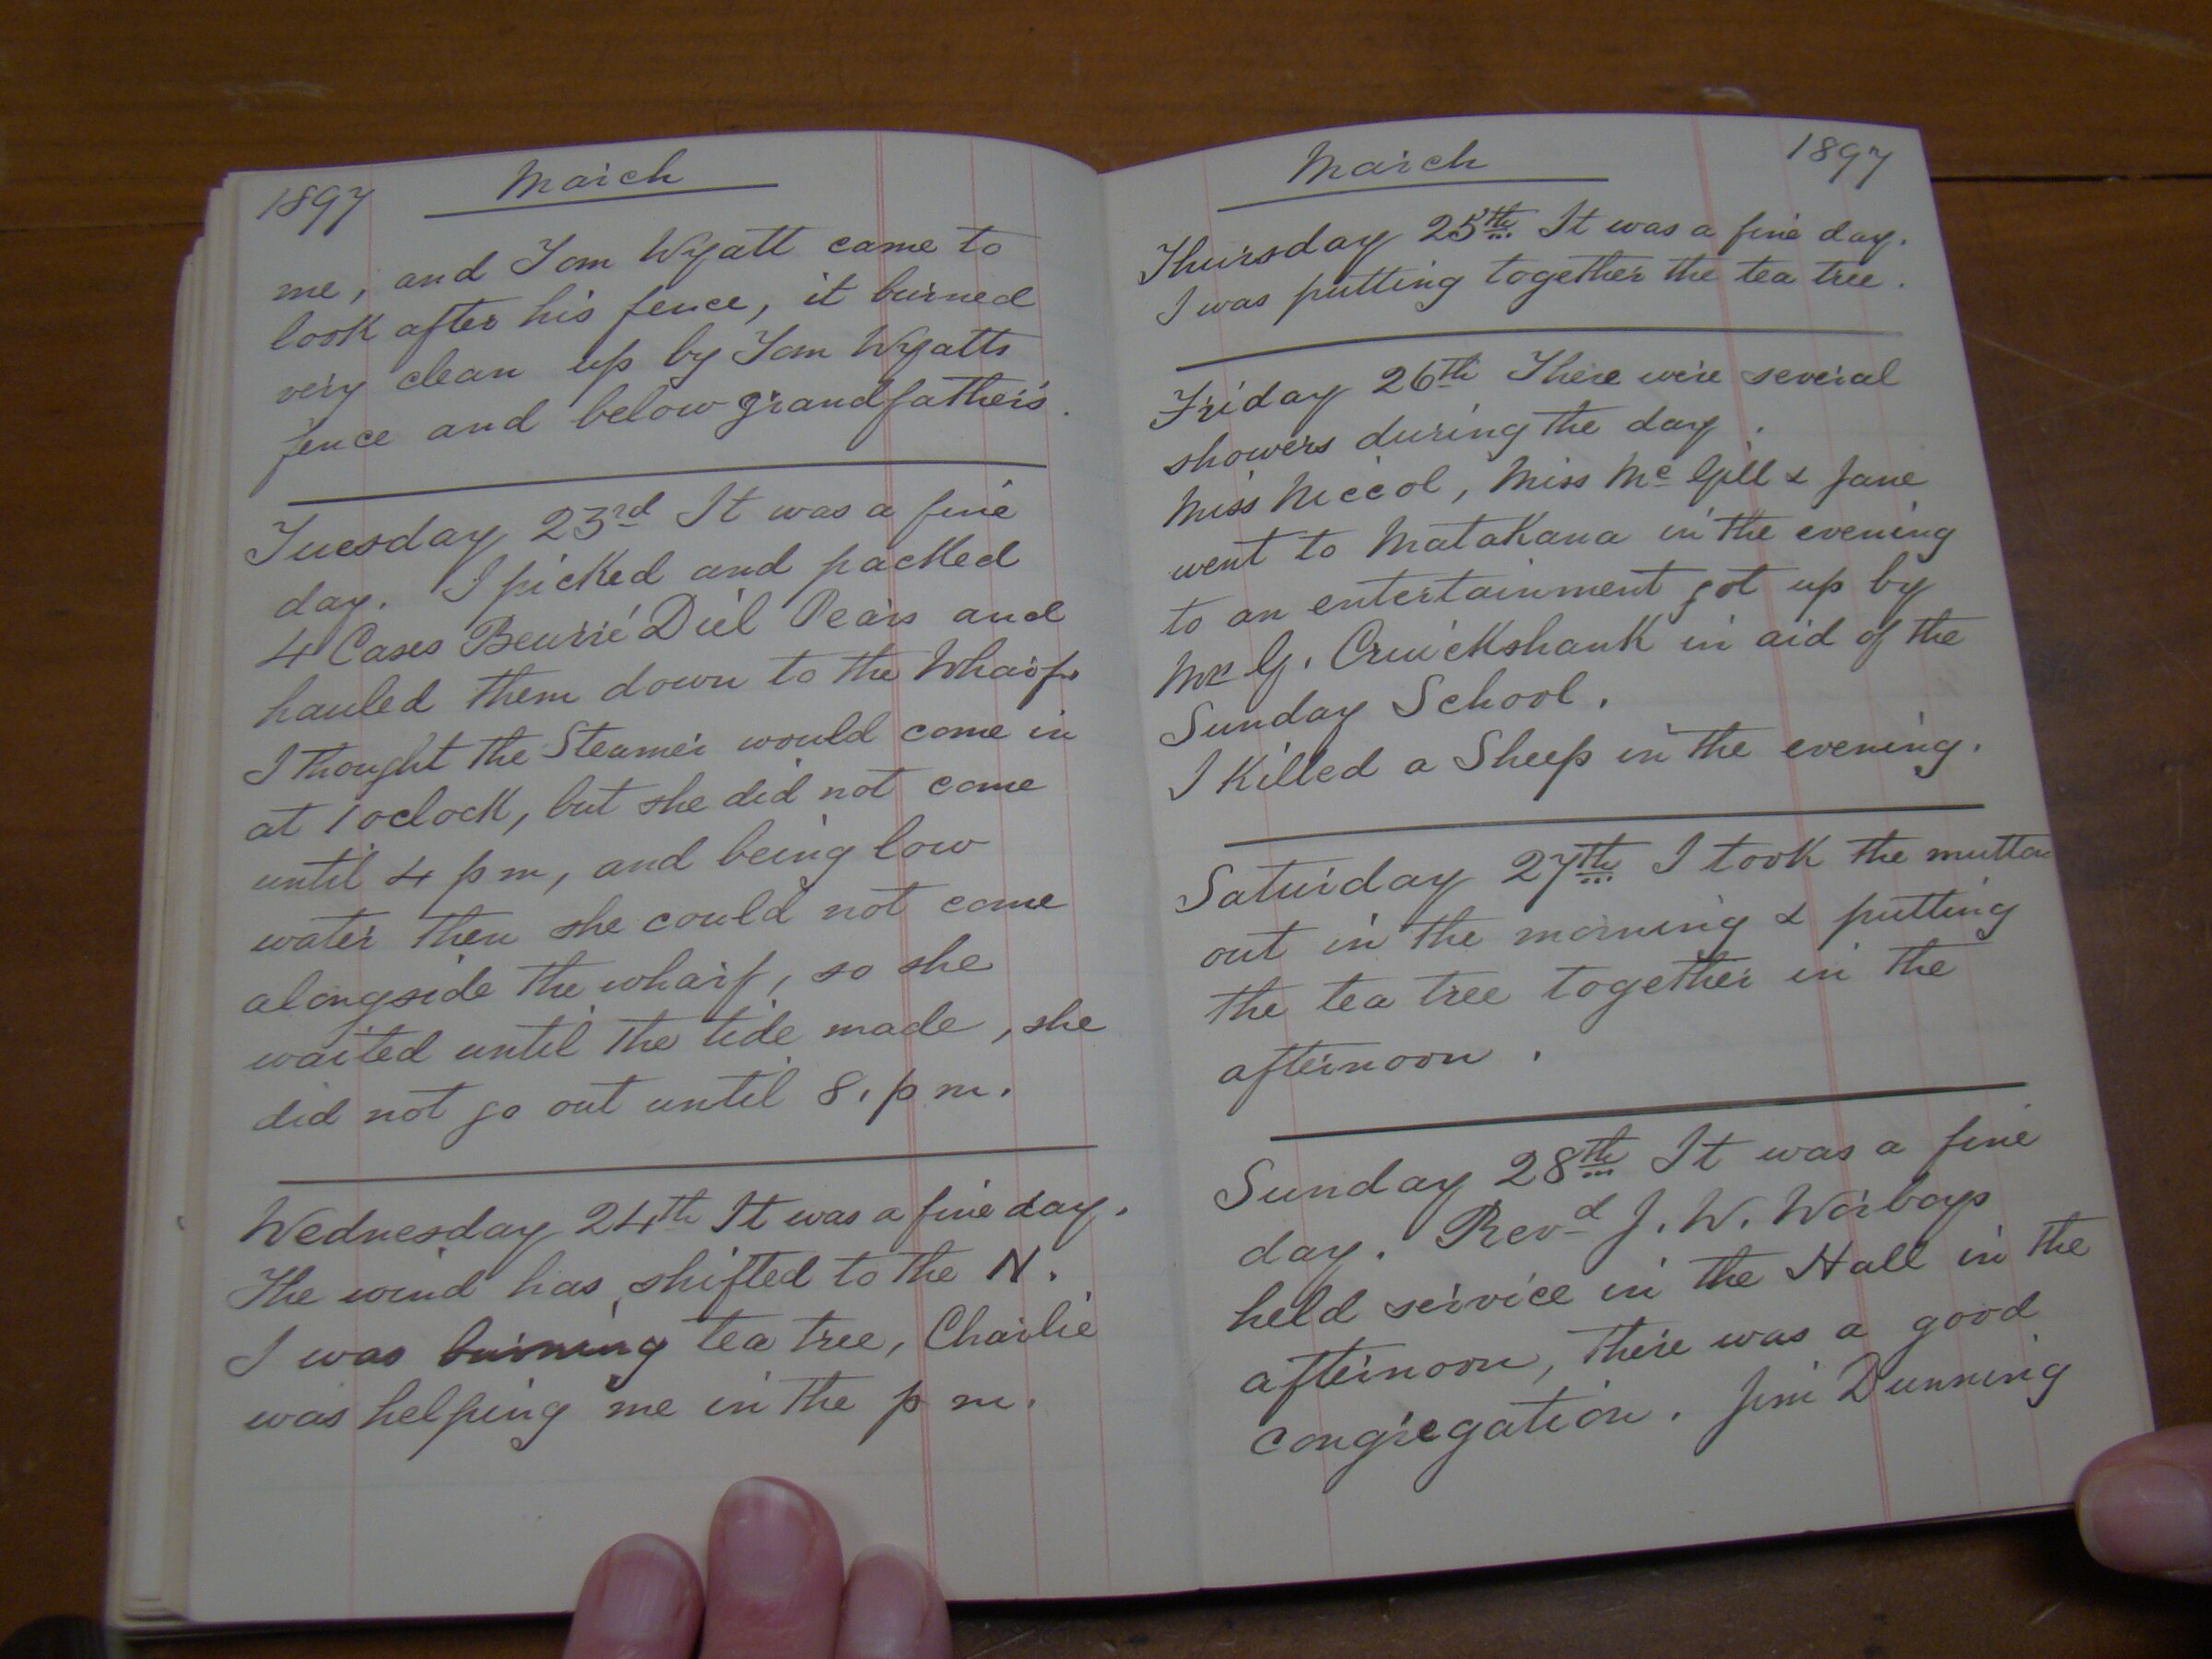 1897 March
me, and Tom Wyatt came to
look after his fence, it burned
very clean up by Tom Wyatts
fence and below grandfathers.
Tuesday 23rd It was a fine
day. I picked and packed
4 Cases Beurré Diel Pears and
hauled them down to the Wharf.
I thought the Steamer would come in
at 1 oclock, but she did not come
until 4 pm, and being low
water then she could not come
alongside the wharf, so she
waited until the tide made, she
did not go out until 8. p m.
Wednesday 24th It was a fine day.
The wind has shifted to the N.
I was burning tea tree, Charlie
was helping me in the p m.
March 1897
Thursday 25th It was a fine day.
I was putting together the tea tree.
Friday 26th There were several
showers during the day.
Miss Niccol, Miss Mc Gill & Jane
went to Matakana in the evening
to an entertainment got up by
Mr G. Cruickshank in aid of the
Sunday School.
I Killed a Sheep in the evening.
Saturday 27th I took the mutton
out in the morning & putting
the tea tree together in the
afternoon.
Sunday 28th It was a fine
day. Revd J. W. Worboys
held service in the Hall in the
afternoon, there was a good
congregation. Jim Dunning